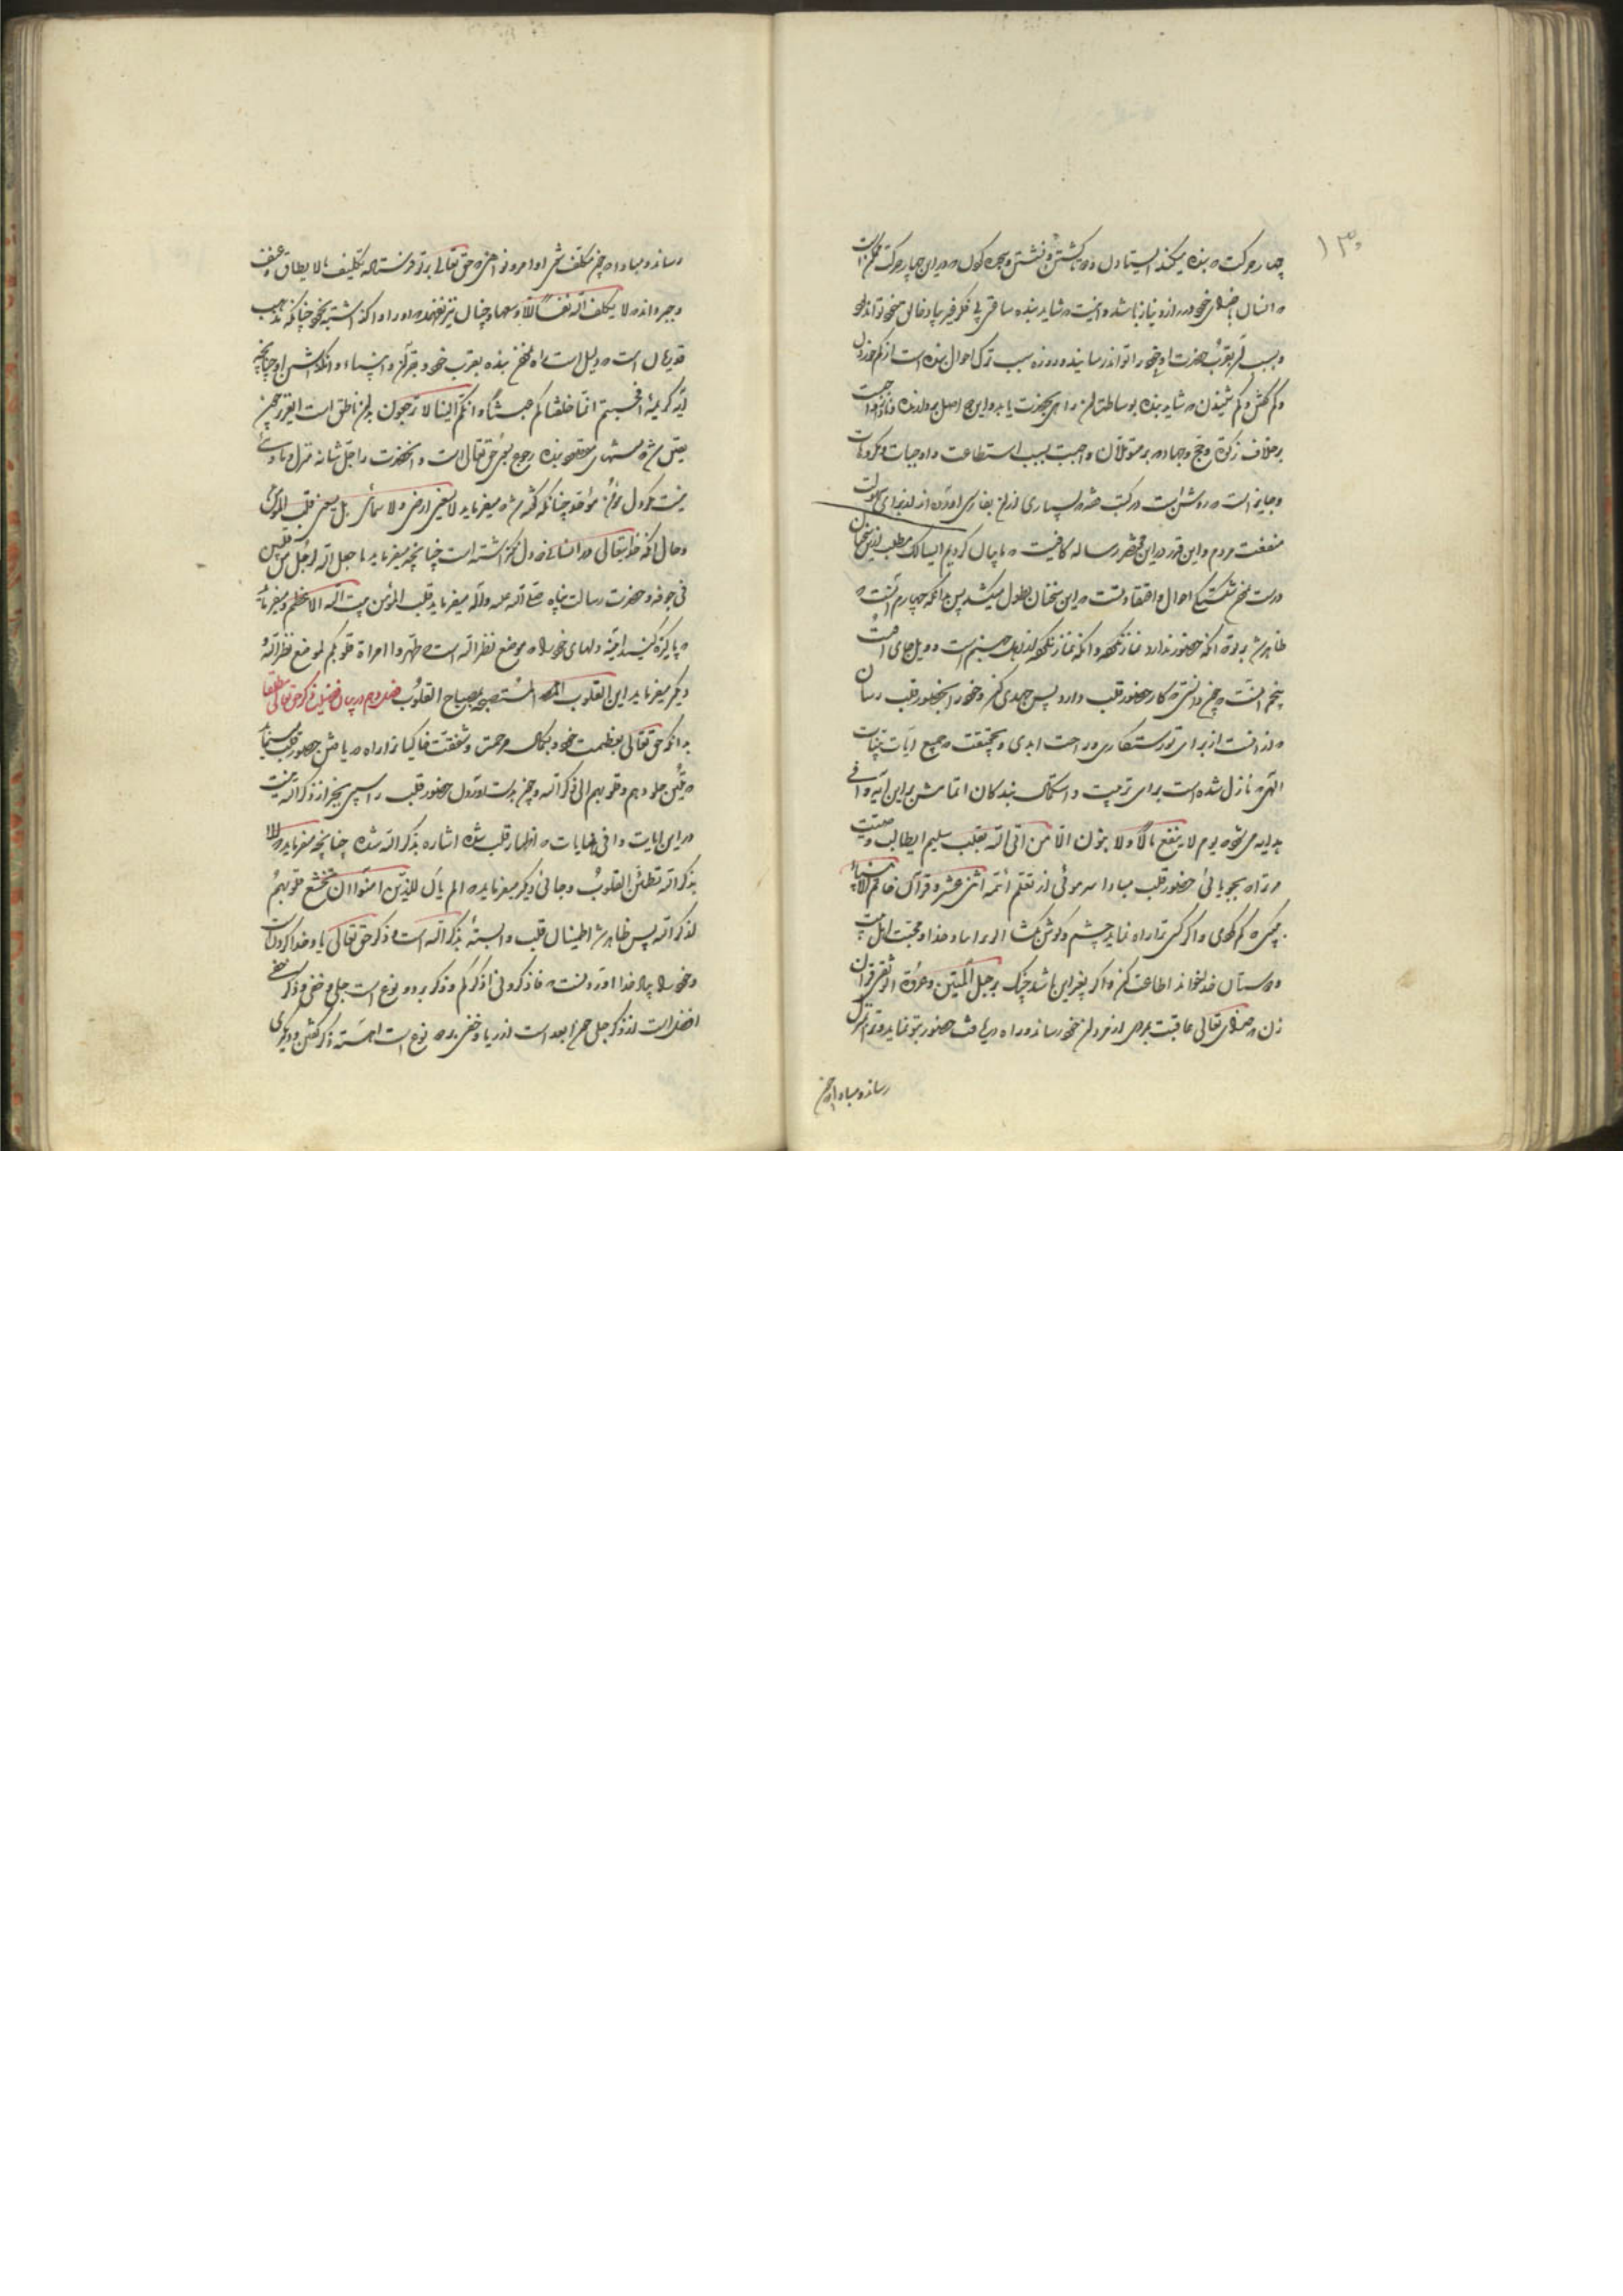 ۱۳۰
چهار حرکت که بنده میکند ایستادن و کشتن و نشستن و سجده کردن که در این چهار حرکت ممکن است
که انسان با خدای خود در راز و نیاز باشد و اینست که شاید بنده ساعتی بی فکر غیر یاد خالق خود تواند بود
و بسبب تقرب حضرت او خود را تواند رسانید و روزه سبب ترک احوال بنده است از کم خوردن
و کم گفتن و کم شنیدن که شاید بنده بوساطت آن راهی بحضرت یابد و این
بر خلاف زکوة و حج و جهاد که بر متمولان واجبست بسبب استطاعت و واجبات و مکروهات
و جایز است که روشن است در کتب بسیاری از آن بفارسی آورده اند از برای سهولت
منفعت مردم و این قدر در این مختصر رساله کافیست که ما بیان کردیم ایسالک مطلب از این سخنان
درست احوال و اعتقاد تست که این سخنان بطول میکشد پس بدانکه چهارم آنست که
ظاهر شد بر تو که آنکه حضور ندارد نماز نکرده و آنکه نماز نکرده از اهل جهنم است و ویل جای
پنجم آنست که چون دانستی که کار حضور قلب دارد پس جهدی کن و خود را بحضور قلب رسان
که از آنست از برای تو رستگاری و راحت ابدی و بحقیقت که جمیع آیات بینات
الهی که نازل شده است برای تربیت و استکمال بندکان اتمامش بر این آیه وافی
هدایه می شود یوم لا ینفع مال ولا بنون الا من اتی الله بقلب سلیم ایطالب
مر تراه بجویائی حضور قلب مبادا سر موئی از تعلم ائمه اثنی عشر و قرآن خاتم الانبیاء
پیچی که گم گردی و اگر کسی ترا راه نماید چشم و گوش بگشا اگر براه خدا و محبت اهل بیت
و دوستان خدا بخواند اطاعت کن و اگر بغیر این باشد چنگ بر حبل المتین و عروة الوثقی قرآن
زن که خدای تعالی عاقبت مردی از مردان خود رساند و راه دریافت حضور بتو نماید
رساند و مبادا که چون
رساند و مبادا که چون مکلف شوی اوامر و نواهی که حق تعالی بر تو فرستاده تکلیف ما لا یطاق و عنف
و جبر دانی که لا یکلف الله نفسا الا وسعها و چنان نیز نفهمی که او را واگذاشته بخود چنانکه مذهب
قدریان است که دلیل است بنده بقرب خود و قرآن و انبیاء و چنانچه
آیه کریمه افحسبتم انما خلقناکم عبثا و انکم الینا لا ترجعون بر این ناطق است ایعزیز چون
یقین شد منتهای مقصود بنده رجوع بسوی حق تعالی است و آنحضرت را جل شانه منزل و ماوائی
نیست مگر دل مؤمن موحد چنانکه گفته شد میفرماید لا یسعنی ارضی ولا سمائی بل یسعنی قلب المؤمن
و حال آنکه خدایتعالی در انسانی دو دل نگذاشته است چنانچه میفرماید ما جعل الله لرجل من قلبین
فی جوفه و حضرت رسالت پناه صلی الله علیه وآله میفرماید قلب المؤمن بیت الله الاعظم و میفرماید
که پاکیزه کنید آینه دلهای خود را که موضع نظر الله است طهروا مرآة قلوبکم لموضع نظر الله
و دیگر میفرماید این القلوب المستصبحة بمصباح القلوب فصل دوم در بیان فضیلت ذکر حق تعالی مطلقا
بدانکه حق تعالی بعظمت خود و بکمال مرحمت و شفقت خاکیان را راه دریافتن حضور قلب مینماید
که تلین جلودهم و قلوبهم الی ذکر الله و چون بدست آوردن حضور قلب را سببی بجز از ذکر الله نیست
در این آیات وافی هدایات که اظهار قلب شده اشاره بذکر الله شده چنانچه میفرماید که الا
بذکر الله تطمئن القلوب و جائی دیگر میفرماید که الم یأن للذین آمنوا ان تخشع قلوبهم
لذکر الله پس ظاهر شد اطمینان قلب وابسته بذکر الله است و ذکر حق تعالی یاد خدا کردنست
و خود را بیاد خدا آوردنست که فاذکرونی اذکرکم و ذکر بر دو نوع است جلی و خفی و ذکر خفی
افضل است از ذکر جلی چرا ابعد است از ریا و خفی بر دو نوع است آهسته ذکر گفتن و دیگری